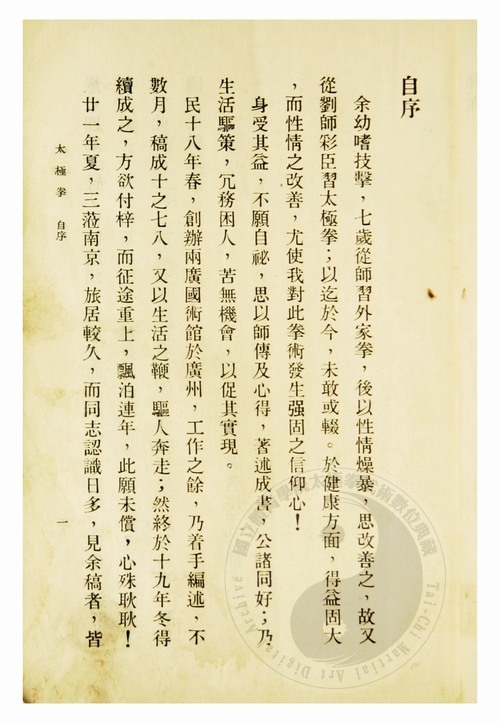 自序
余幼嗜技擊，七歲從師習外家拳，後以性情燥暴，思改善之，故又
從劉師彩臣習太極拳；以迄於今，未敢或輟。於健康方面，得益固大
，而性情之改善，尤使我對此拳術發生强固之信仰心！
身受其益，不願自祕，思以師傳及心得，著述成書，公諸同好；乃
生活驅策，冗務困人，苦無機會，以促其實現。
民十八年春，創辦兩廣國術館於廣州，工作之餘，乃着手編述，不
數月，稿成十之七八，又以生活之鞭，驅人奔走；然終於十九年冬得
續成之，方欲付梓，而征途重上，飄泊連年，此願未償，心殊耿耿！
廿一年夏，三蒞南京，旅居較久，而同志認識日多，見余稿者，皆
太極拳 自序
一
Tai-Chi Martial Art Digital Archive